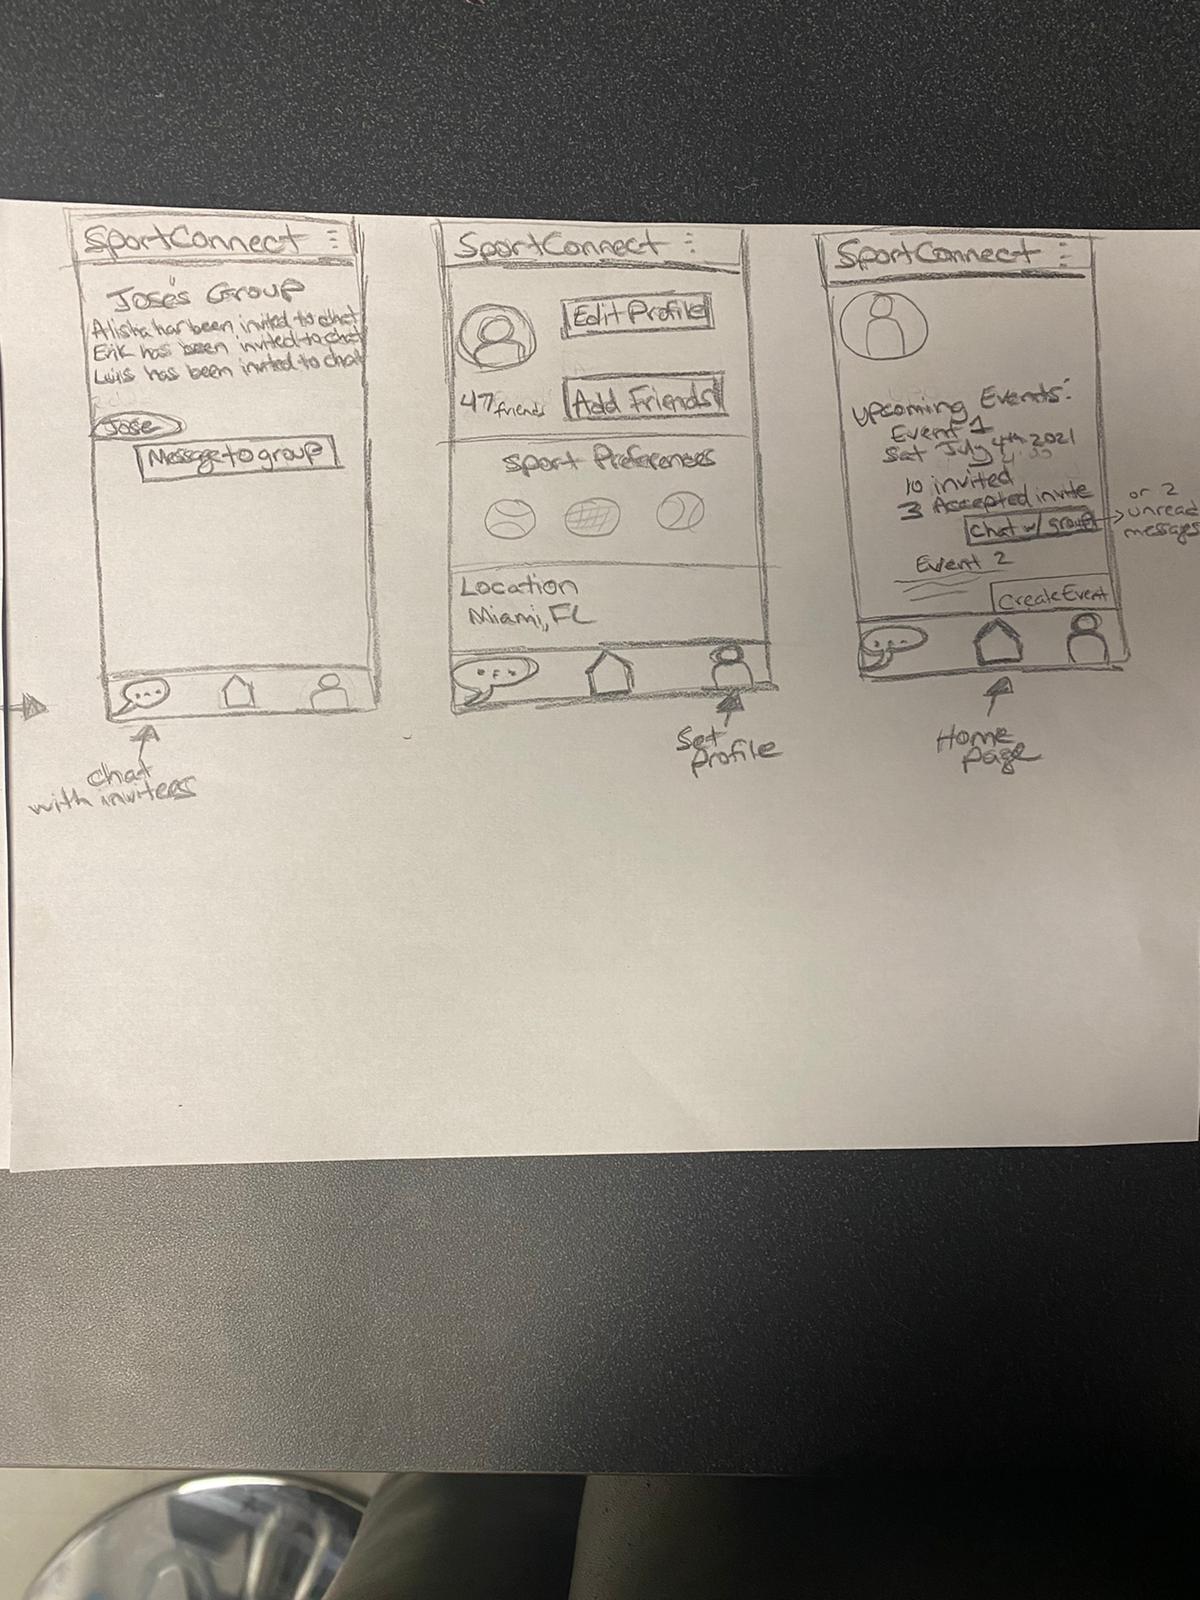 SportConnect
José's Group
Alisha has been invited to chat
Erik has been invited to chat
Luis has been invited to chat
Jose
Message to group
chat
with invitees
SportConnect
Edit Profile
47 friends
Add Friends
Sport Preferences
Location
Miami, FL
Set
Profile
SportConnect
Upcoming Events:
Event 1
Sat July 4th 2021
10 invited
3 Accepted invite
Chat w/ group
or 2
unread
messages
Event 2
Create Event
Home
Page